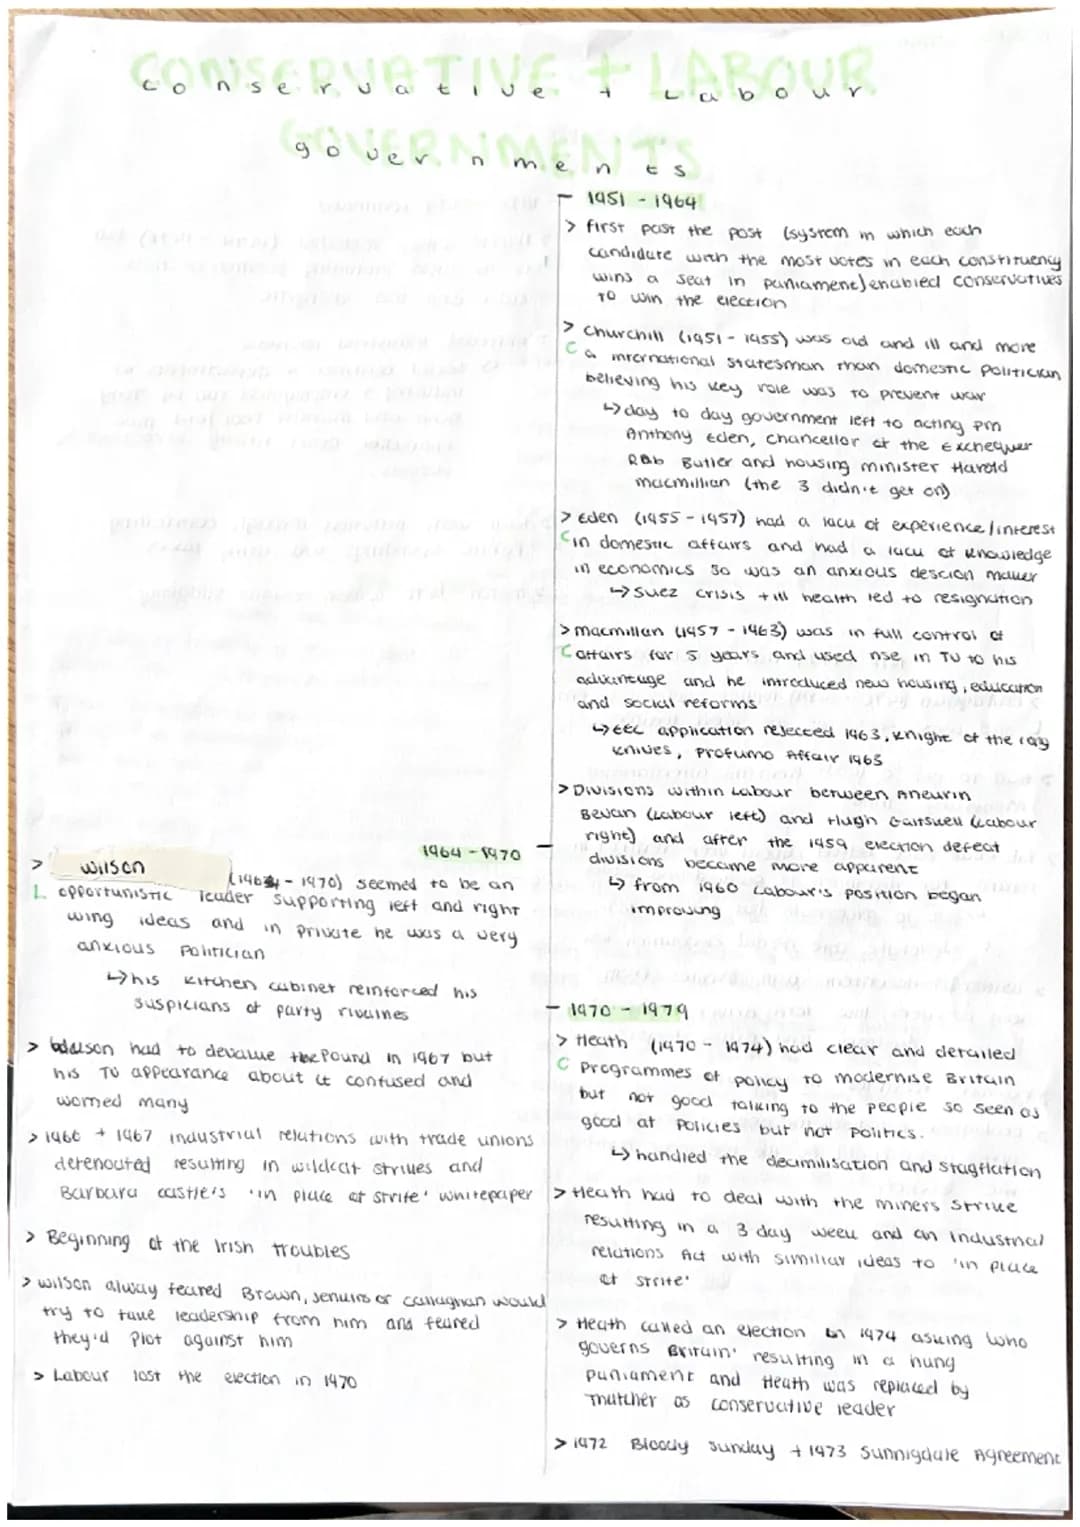 CONSERVATIVE + LABOUR
GOVERNMENTS
conservative + Labour
governments
1951 - 1964
> first past the post (system in which each
candidate with the most votes in each constituency
wins a seat in parliament) enabled conservatives
to win the election
> Churchill (1951 - 1955) was old and ill and more
C a international statesman than domestic politician
believing his key role was to prevent war
↳ day to day government left to acting pm
Anthony Eden, chancellor of the Exchequer
Rab Butler and housing minister Harold
macmillian (the 3 didn't get on)
> Eden (1955 - 1957) had a lack of experience/interest
C in domestic affairs and had a lack of knowledge
in economics so was an anxious descion maker
↳ Suez crisis + ill health led to resignation
> macmillan (1957 - 1963) was in full control of
C affairs for 5 years and used rise in TV to his
advantage and he introduced new housing, education
and social reforms
↳ EEC application rejected 1963, knight of the
knives, Profumo Affair 1963
> Divisions within Labour between Aneurin
Bevan (Labour left) and Hugh Gaitskell (Labour
right) and after the 1959 election defeat
divisions became more apparent
↳ from 1960 Labour's position began
improving
1964 - 1970
> Wilson (1964 - 1970) seemed to be an
L opportunistic leader supporting left and right
wing ideas and in private he was a very
anxious politician
↳ his kitchen cabinet reinforced his
suspicians of party rivalries
> had to devalue the Pound in 1967 but
his TV appearance about it confused and
worried many
> 1966 + 1967 industrial relations with trade unions
deteriouted resulting in wildcat strikes and
Barbara castle's 'in place of strife' whitepaper
> Beginning of the Irish troubles
> wilson alway feared Brown, Jenkins or Callaghan would
try to take leadership from him and feared
they'd plot against him
> Labour lost the election in 1970
1970 - 1979
> Heath (1970 - 1974) had clear and detailed
C Programmes of policy to modernise Britain
but not good talking to the people so seen as
good at policies but not politics.
↳ handled the decimilisation and stagflation
> Heath had to deal with the miners strike
resulting in a 3 day week and an industrial
relations Act with similiar ideas to 'in place
of strife'
> Heath called an election in 1974 asking 'who
governs Britain' resulting in a hung
parliament and Heath was replaced by
Thatcher as conservative leader
> 1972 Bloody Sunday + 1973 Sunnigdale Agreement